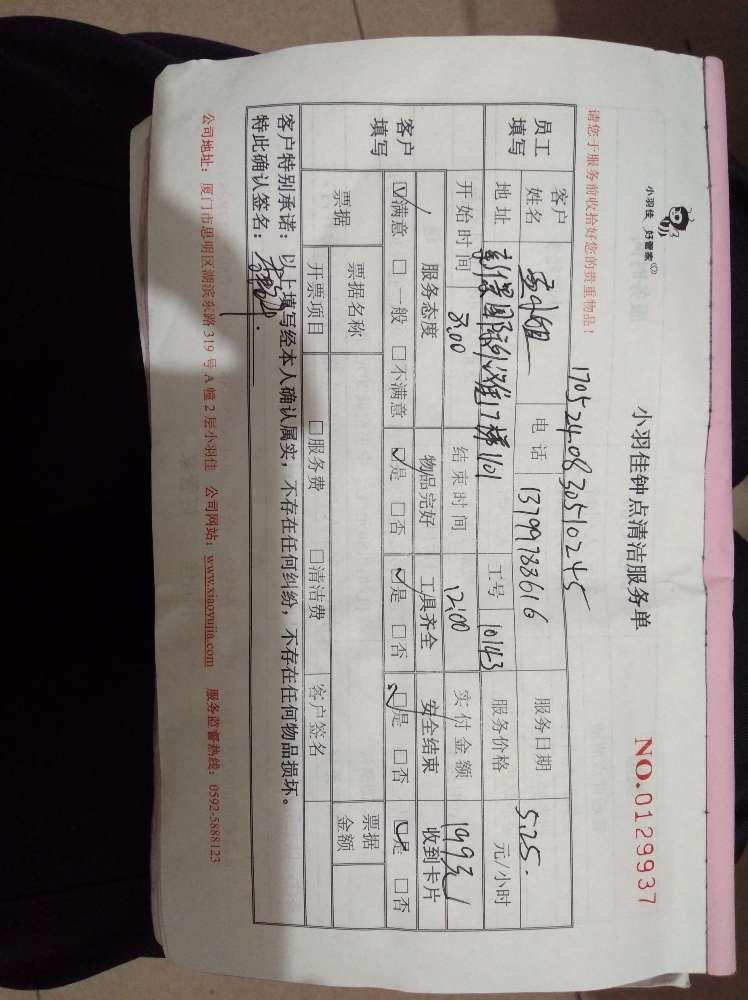 小羽佳 好管家
小羽佳钟点清洁服务单
NO.0129937
请您于服务前收拾好您的贵重物品!
1705240830510245
员工填写
客户姓名 小姐 电话 13799783616 服务日期 5.25.
地址 国际 17梯1101 工号 10143 服务价格 元/小时
开始时间 8:00 结束时间 12:00 实付金额 199元
客户填写
服务态度 物品完好 工具齐全 安全结束 收到卡片
☑满意 □一般 □不满意 ☑是 □否 ☑是 □否 ☑是 □否 ☑是 □否
票据 票据名称 票据金额
开票项目 □服务费 □清洁费 客户签名
客户特别承诺:以上填写经本人确认属实,不存在任何纠纷,不存在任何物品损坏。
特此确认签名:
公司地址:厦门市思明区湖滨东路319号A幢2层小羽佳 公司网站:www.xiaoyujia.com 服务监督热线:0592-5888123